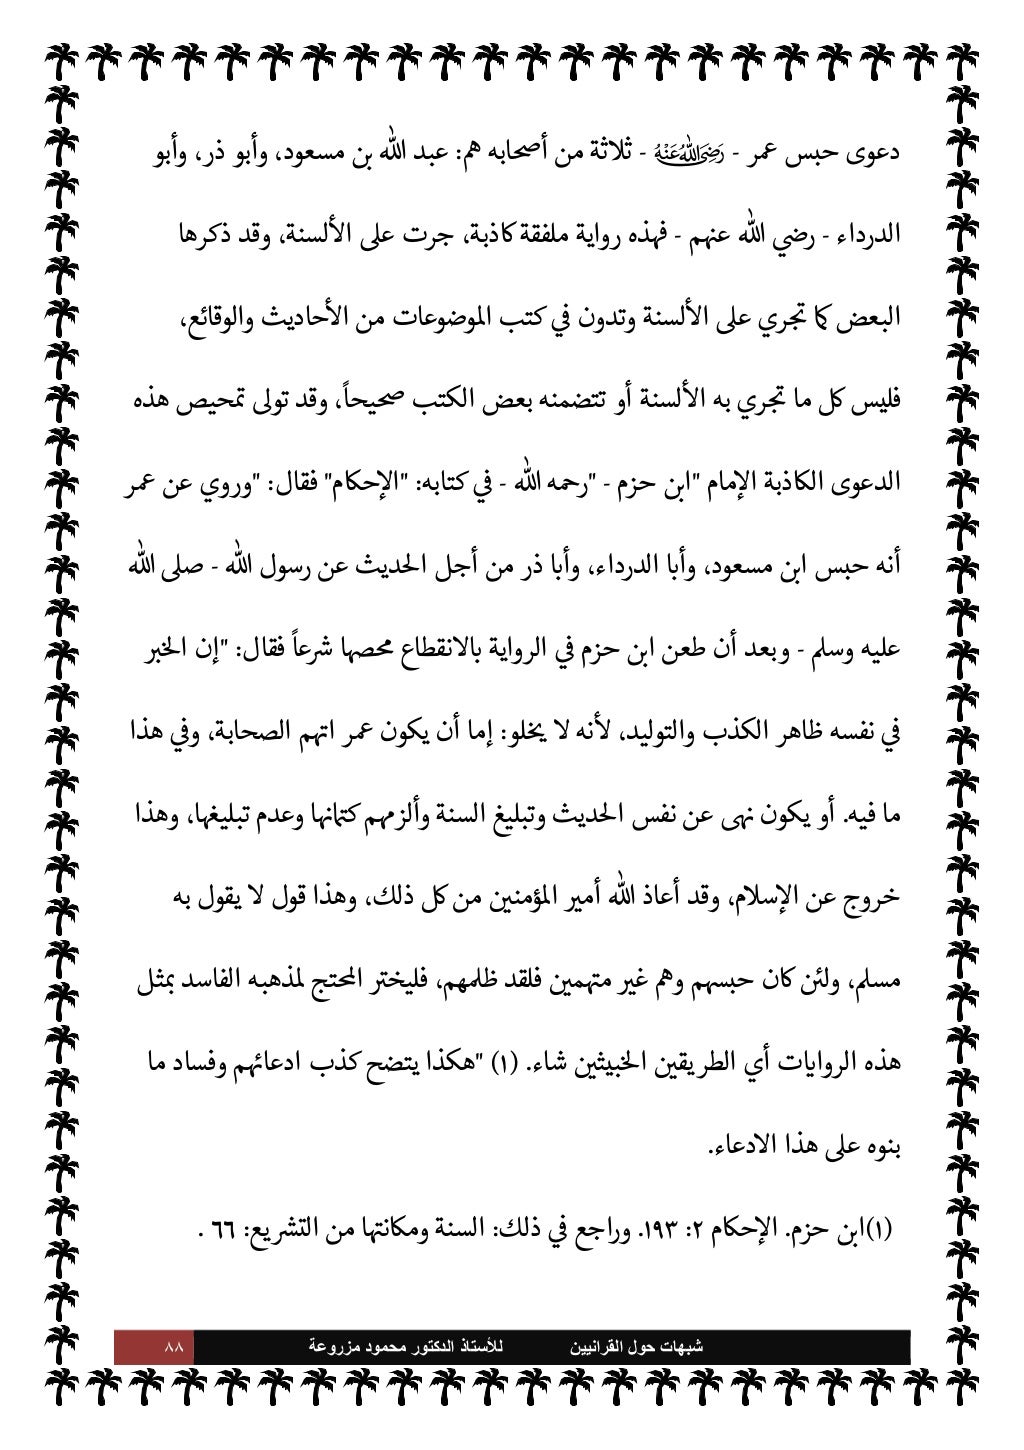 دعوى حبس عمر - رَضِيَ اللهُ عَنْهُ - ثلاثة من أصحابه هم: عبد الله بن مسعود، وأبو ذر، وأبو
الدرداء - رضي الله عنهم - فهذه رواية ملفقة كاذبة، جرت على الألسنة، وقد ذكرها
البعض كما تجري على الألسنة وتدون في كتب الموضوعات من الأحاديث والوقائع،
فليس كل ما تجري به الألسنة أو تتضمنه بعض الكتب صحيحاً، وقد تولى تمحيص هذه
الدعوى الكاذبة الإمام "ابن حزم - "رحمه الله - في كتابه: "الإحكام" فقال: "وروي عن عمر
أنه حبس ابن مسعود، وأبا الدرداء، وأبا ذر من أجل الحديث عن رسول الله - صلى الله
عليه وسلم - وبعد أن طعن ابن حزم في الرواية بالانقطاع محصها شرعاً فقال: "إن الخبر
في نفسه ظاهر الكذب والتوليد، لأنه لا يخلو: إما أن يكون عمر اتهم الصحابة، وفي هذا
ما فيه. أو يكون نهى عن نفس الحديث وتبليغ السنة وألزمهم كتمانها وعدم تبليغها، وهذا
خروج عن الإسلام، وقد أعاذ الله أمير المؤمنين من كل ذلك، وهذا قول لا يقول به
مسلم، ولئن كان حبسهم وهم غير متهمين فلقد ظلمهم، فليختر المحتج لمذهبه الفاسد بمثل
هذه الروايات أي الطريقين الخبيثين شاء. (١) "هكذا يتضح كذب ادعائهم وفساد ما
بنوه على هذا الادعاء.
(١)ابن حزم. الإحكام ٢: ١٩٣. وراجع في ذلك: السنة ومكانتها من التشريع: ٦٦ .
شبهات حول القرانيين للأستاذ الدكتور محمود مزروعة ٨٨